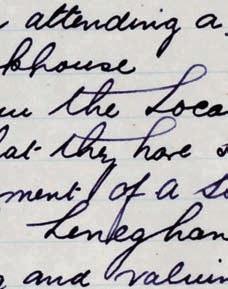 attending a
khouse
the Loca
hat they have
ment of a S
Leneghan
and valuin